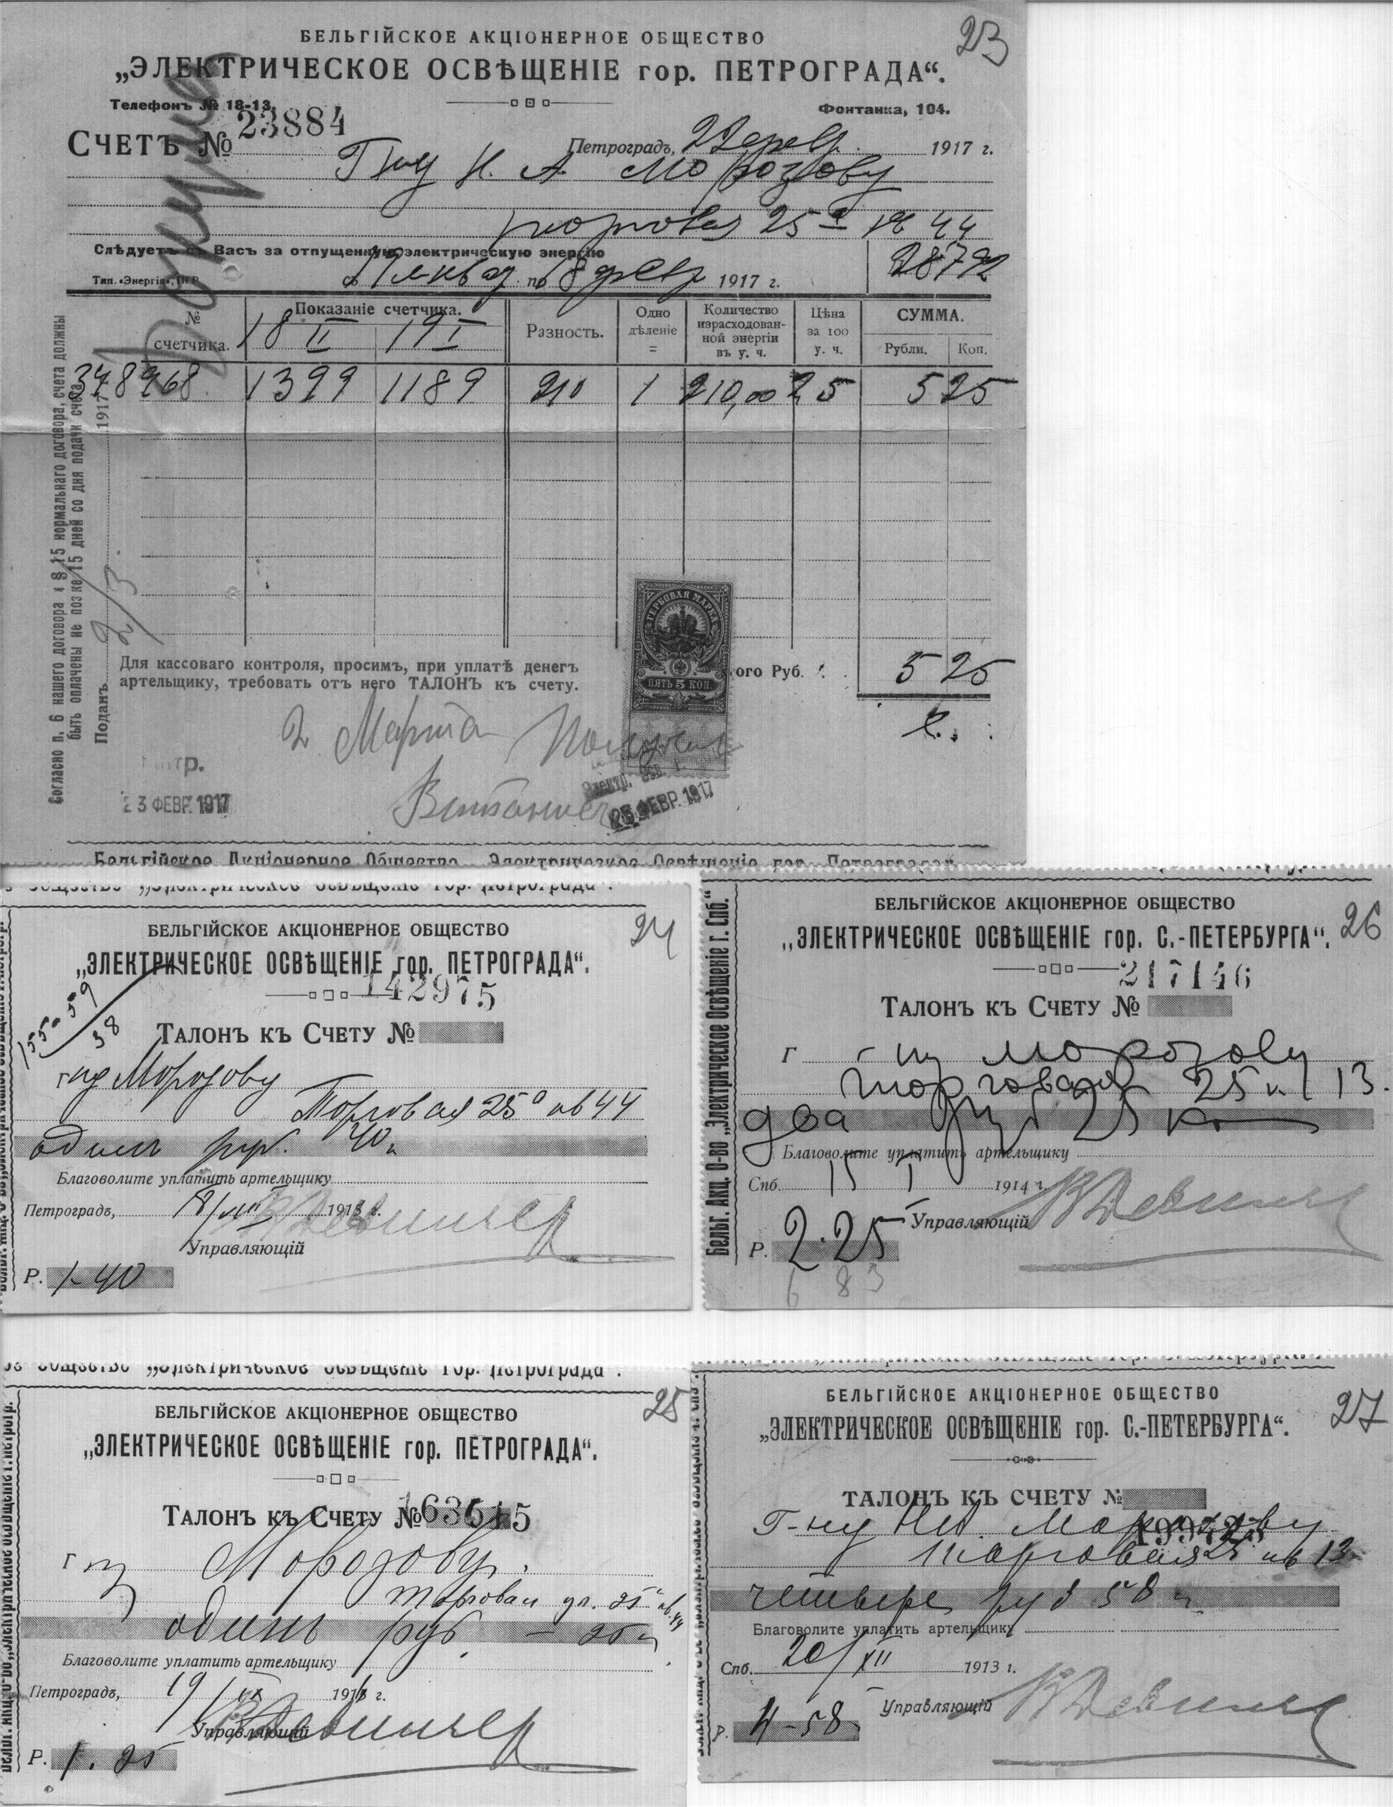 23
БЕЛЬГІЙСКОЕ АКЦІОНЕРНОЕ ОБЩЕСТВО
„ЭЛЕКТРИЧЕСКОЕ ОСВѢЩЕНІЕ гор. ПЕТРОГРАДА“.
Телефонъ № 18-13.
Фонтанка, 104.
СЧЕТЪ № 23884
Петроградъ, 22 февр. 1917 г.
Г-ну Н. А. Морозову
Торговая 25а кв 44
Слѣдуетъ съ Васъ за отпущенную электрическую энергію
Тип. «Энергія»,
Январ по 18 февр 1917 г.
28792
№ счетчика.
Показаніе счетчика.
18 II 19 I
Разность.
Одно дѣленіе =
Количество израсходован- ной энергіи въ у. ч.
Цѣна за 100 у. ч.
СУММА.
Рубли. Коп.
348968 1399 1189 210 1 210,00 25 5 25
Согласно п. 6 нашего договора и § 15 нормальнаго договора, счета должны
быть оплачены не позже 15 дней со дня подачи счета.
Поданъ 2/3 1917
Для кассоваго контроля, просимъ, при уплатѣ денегъ
артельщику, требовать отъ него ТАЛОНЪ къ счету.
ГЕРБОВАЯ МАРКА
ПЯТЬ 5 КОП
ого Руб. 5 25
2 Марта
23 ФЕВР. 1917
Электр. Осв.
ФЕВР. 1917
Бельгійское Акціонерное Общество „Электрическое Освѣщеніе гор. Петрограда“
24
БЕЛЬГІЙСКОЕ АКЦІОНЕРНОЕ ОБЩЕСТВО
„ЭЛЕКТРИЧЕСКОЕ ОСВѢЩЕНІЕ гор. ПЕТРОГРАДА“.
142975
ТАЛОНЪ КЪ СЧЕТУ №
г-ну Морозову
Торговая 25а кв 44
один руб. 40 к
Благоволите уплатить артельщику
Петроградъ, 18/VIII
Управляющій
Р. 1-40
26
Бельг. Акц. О-во „Электрическое Освѣщеніе г. Спб.“
БЕЛЬГІЙСКОЕ АКЦІОНЕРНОЕ ОБЩЕСТВО
„ЭЛЕКТРИЧЕСКОЕ ОСВѢЩЕНІЕ гор. С.-ПЕТЕРБУРГА“.
217146
ТАЛОНЪ КЪ СЧЕТУ №
г-ну Морозову
Торговая 25 к 13.
два руб 25 к
Благоволите уплатить артельщику
Спб. 15 I 1914 г.
Управляющій
Р. 2.25
25
БЕЛЬГІЙСКОЕ АКЦІОНЕРНОЕ ОБЩЕСТВО
„ЭЛЕКТРИЧЕСКОЕ ОСВѢЩЕНІЕ гор. ПЕТРОГРАДА“.
ТАЛОНЪ КЪ СЧЕТУ № 163515
г Морозову.
Торговая ул. 25а кв. 44
одинъ руб — 25 к
Благоволите уплатить артельщику
Петроградъ, 19/IX 1916 г.
Управляющій
Р. 1.25
27
БЕЛЬГІЙСКОЕ АКЦІОНЕРНОЕ ОБЩЕСТВО
„ЭЛЕКТРИЧЕСКОЕ ОСВѢЩЕНІЕ гор. С.-ПЕТЕРБУРГА“.
ТАЛОНЪ КЪ СЧЕТУ №
Г-ну Морозову
Торговая 25 кв 13
четыре руб 58 к
Благоволите уплатить артельщику
Спб. 20/XII 1913 г.
Управляющій
Р. 4-58